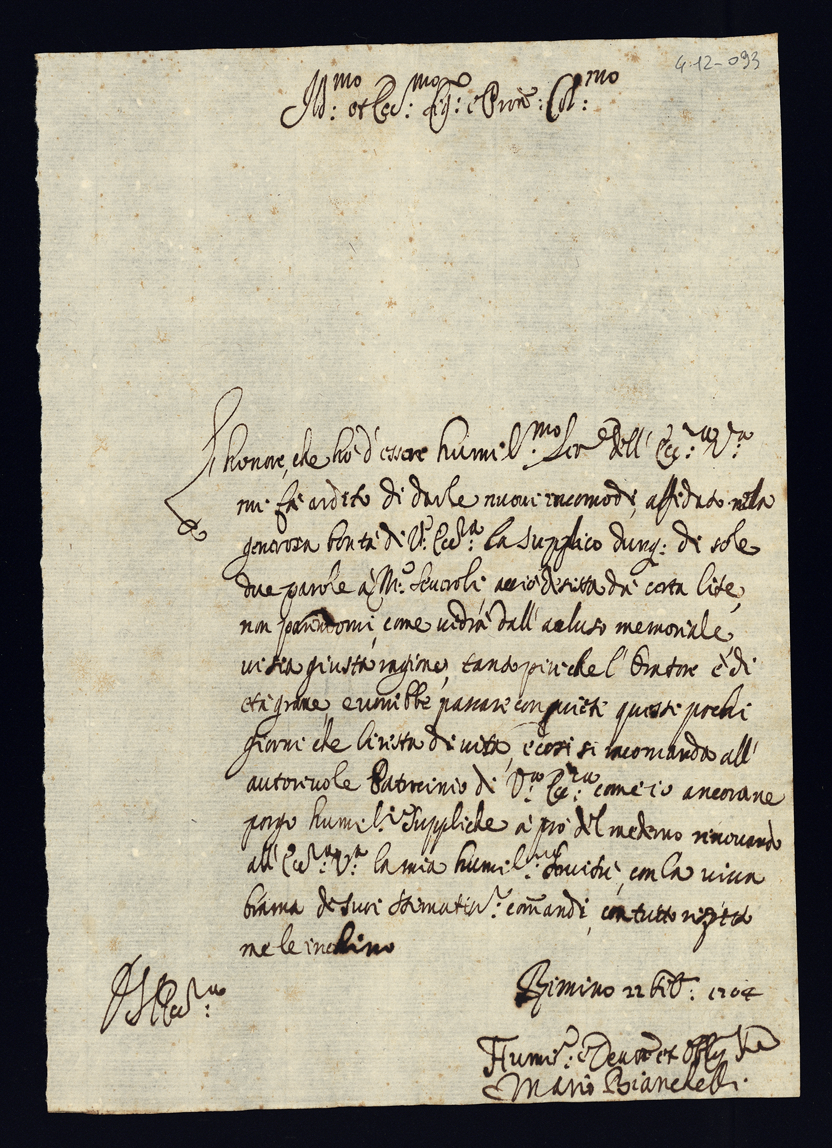 4-12-093
Ill:mo et Ecc:mo Sig: e Pron: Col:mo
L'honore, che hò d'essere humil:mo Ser.e dell' Ecc:a V:a
mi fà ardito di darle nuovi incomodi, affidato nella
generosa bontà di V: Ecc:a la supplico dunq: di sole
due parole à M: acciò desista da certa lite,
non parendomi, come vedrà dall' acluso memoriale,
vi sia giusta ragione, tanto piu che l' Oratore è di
età grave, e vorrebbe passare con quiete questi pochi
giorni che li resta di vita, e così si racomanda all'
autorevole Patrocinio di V:a Ecc:a come io ancora ne
porgo humil:e suppliche à prò del medemo rinovando
all' Ecc:a V:a la mia humil:ma servitù, con la viva
brama de suoi stimatis:i comandi, con tutto rispetto
me le inchino
V S Ecc:a
Rimino 22 Feb: 1704
Humil: e Devot et Obblig Ser
Mario Bianchelli